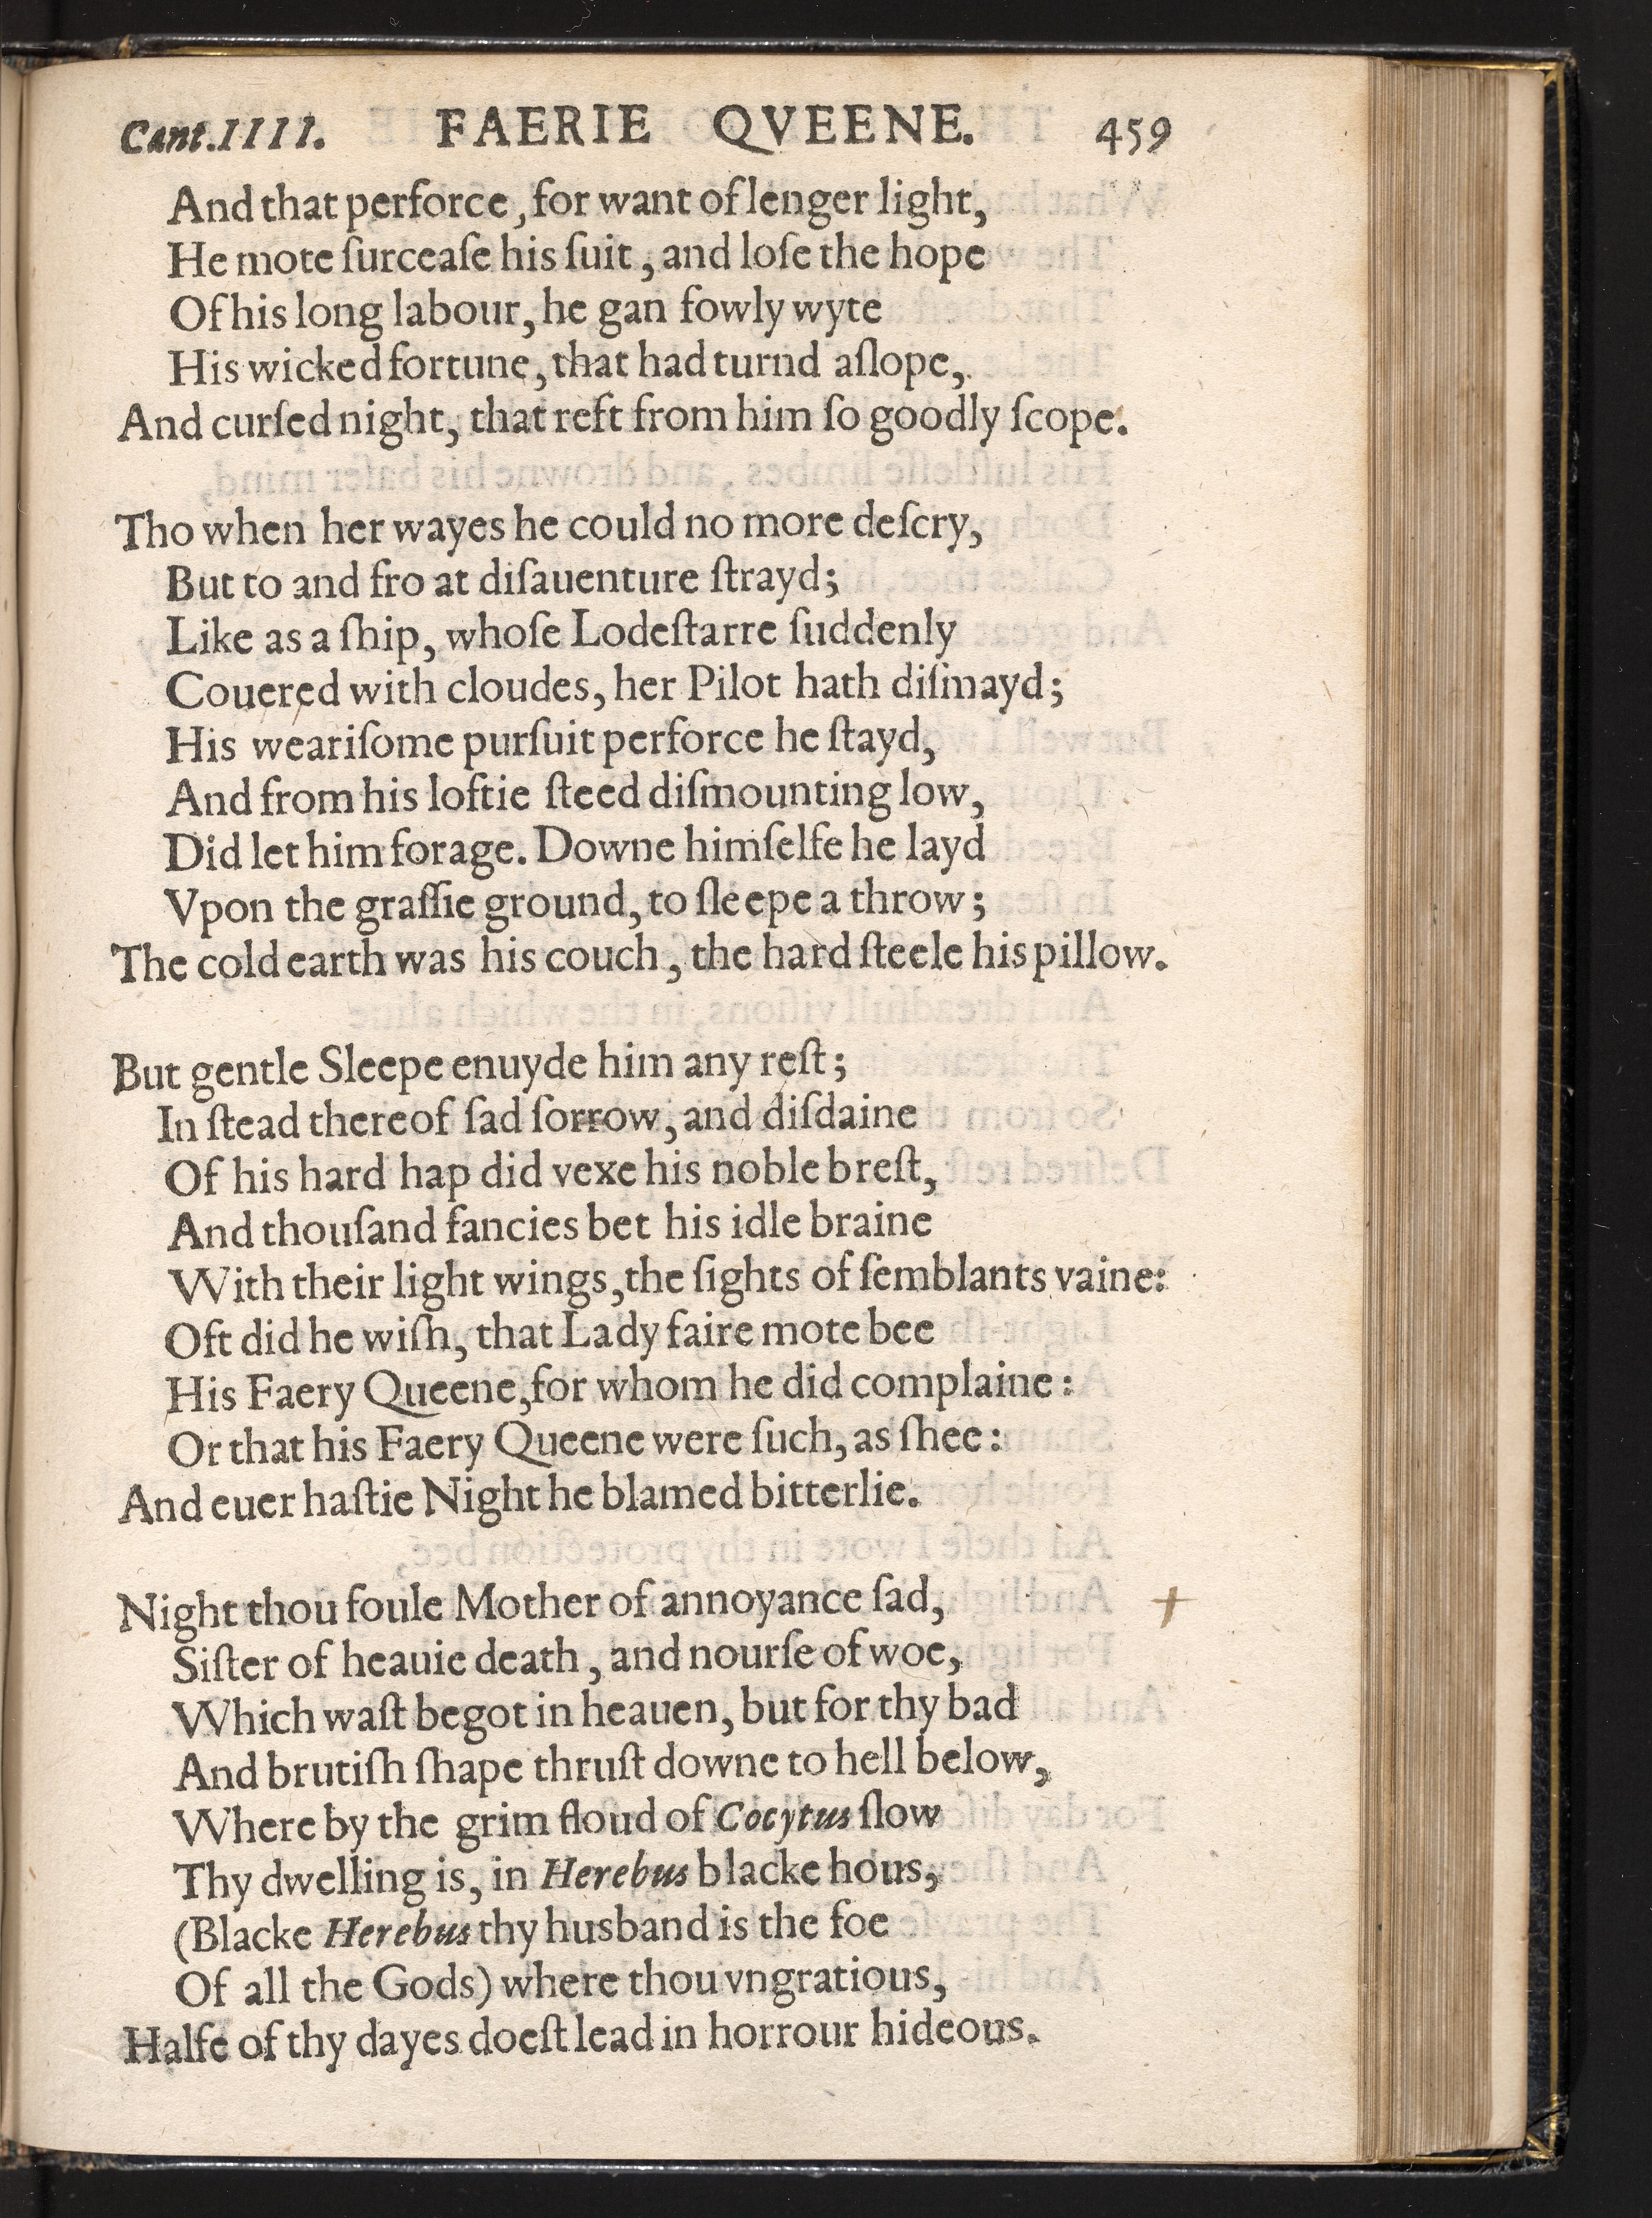 Cant.IIII. FAERIE QVEENE. 459
And that perforce, for want of lenger light,
He mote ſurceaſe his ſuit, and loſe the hope
Of his long labour, he gan fowly wyte
His wicked fortune, that had turnd aſlope,
And curſed night, that reft from him ſo goodly ſcope.
Tho when her wayes he could no more deſcry,
But to and fro at diſauenture ſtrayd;
Like as a ſhip, whoſe Lodeſtarre ſuddenly
Couered with cloudes, her Pilot hath diſmayd;
His weariſome purſuit perforce he ſtayd,
And from his loftie ſteed diſmounting low,
Did let him forage. Downe himſelfe he layd
Vpon the graſſie ground, to ſleepe a throw;
The cold earth was his couch, the hard ſteele his pillow.
But gentle Sleepe enuyde him any reſt;
In ſtead thereof ſad ſorrow, and diſdaine
Of his hard hap did vexe his noble breſt,
And thouſand fancies bet his idle braine
With their light wings, the ſights of ſemblants vaine:
Oft did he wiſh, that Lady faire mote bee
His Faery Queene, for whom he did complaine:
Or that his Faery Queene were ſuch, as ſhee:
And euer haſtie Night he blamed bitterlie.
Night thou foule Mother of annoyance ſad, +
Siſter of heauie death, and nourſe of woe,
Which waſt begot in heauen, but for thy bad
And brutiſh ſhape thruſt downe to hell below,
Where by the grim floud of Cocytus ſlow
Thy dwelling is, in Herebus blacke hous,
(Blacke Herebus thy husband is the foe
Of all the Gods) where thou vngratious,
Halfe of thy dayes doeſt lead in horrour hideous.